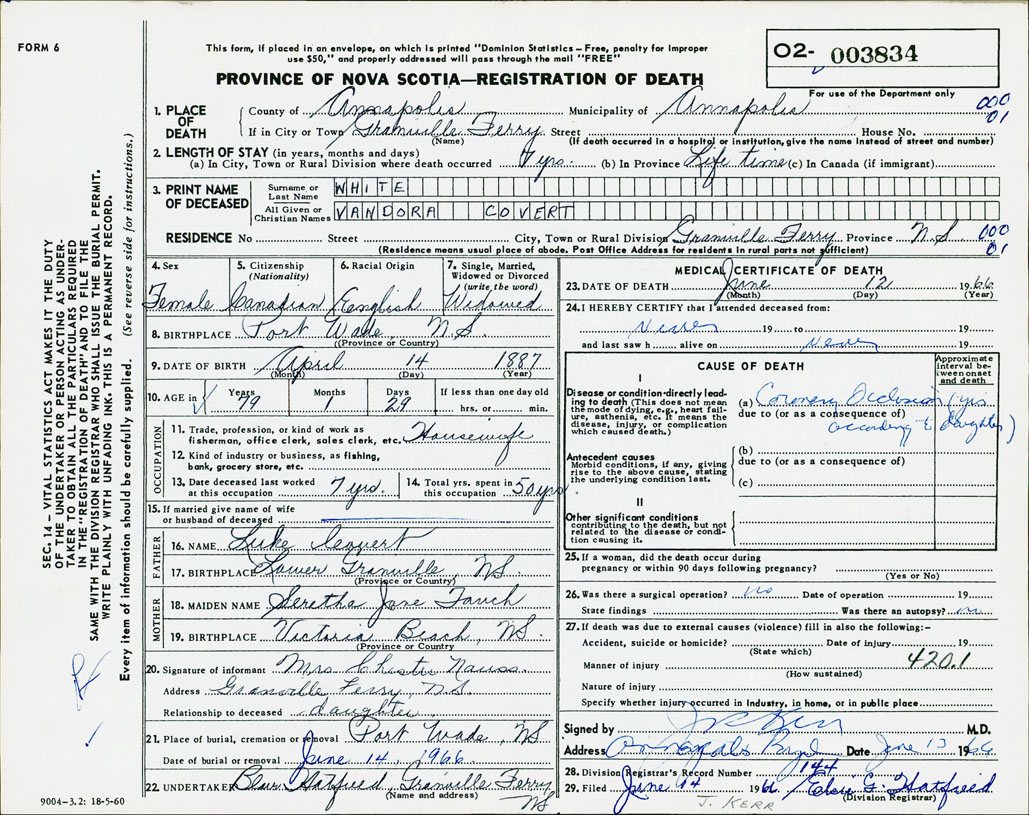 FORM 6
This form, if placed in an envelope, on which is printed "Dominion Statistics – Free, penalty for improper
use $50," and properly addressed will pass through the mail "FREE"
PROVINCE OF NOVA SCOTIA—REGISTRATION OF DEATH
O2- 003834
For use of the Department only
SEC. 14 – VITAL STATISTICS ACT MAKES IT THE DUTY
OF THE UNDERTAKER OR PERSON ACTING AS UNDER-
TAKER TO OBTAIN ALL THE PARTICULARS REQUIRED
IN THE "REGISTRATION OF DEATH" AND TO FILE THE
SAME WITH THE DIVISION REGISTRAR WHO SHALL ISSUE THE BURIAL PERMIT.
WRITE PLAINLY WITH UNFADING INK. THIS IS A PERMANENT RECORD.
Every item of information should be carefully supplied. (See reverse side for instructions.)
1. PLACE OF DEATH County of Annapolis Municipality of Annapolis 000
If in City or Town Granville Ferry Street House No. 01
(Name) (If death occurred in a hospital or institution, give the name instead of street and number)
2. LENGTH OF STAY (in years, months and days)
(a) In City, Town or Rural Division where death occurred 7 yrs. (b) In Province Life time (c) In Canada (if immigrant)
3. PRINT NAME OF DECEASED Surname or Last Name WHITE
All Given or Christian Names VANDORA COVERT
RESIDENCE No Street City, Town or Rural Division Granville Ferry Province N.S. 000
(Residence means usual place of abode. Post Office Address for residents in rural parts not sufficient) 01
4. Sex 5. Citizenship (Nationality) 6. Racial Origin 7. Single, Married, Widowed or Divorced (write the word)
Female Canadian English Widowed
8. BIRTHPLACE Port Wade, N.S.
(Province or Country)
9. DATE OF BIRTH April 14 1887
(Month) (Day) (Year)
10. AGE in Years Months Days If less than one day old
79 1 29 hrs. or min.
OCCUPATION
11. Trade, profession, or kind of work as
fisherman, office clerk, sales clerk, etc. Housewife
12. Kind of industry or business, as fishing,
bank, grocery store, etc.
13. Date deceased last worked at this occupation 7 yrs. 14. Total yrs. spent in this occupation 50 yrs
15. If married give name of wife
or husband of deceased
FATHER
16. NAME Luke Covert
17. BIRTHPLACE Lower Granville, NS.
(Province or Country)
MOTHER
18. MAIDEN NAME Jane
19. BIRTHPLACE Victoria Beach, NS.
(Province or Country
20. Signature of informant Mrs. Chester Nauss.
Address Granville Ferry, N.S.
Relationship to deceased daughter
21. Place of burial, cremation or removal Port Wade, NS
Date of burial or removal June 14, 1966
22. UNDERTAKER Hatfield, Granville Ferry
(Name and address) NS
9004-3.2: 18-5-60
MEDICAL CERTIFICATE OF DEATH
23. DATE OF DEATH June 12 1966
(Month) (Day) (Year)
24. I HEREBY CERTIFY that I attended deceased from:
never 19 to 19
and last saw h alive on never 19
CAUSE OF DEATH
Approximate interval between onset and death
I
Disease or condition directly lead-
ing to death (This does not mean
the mode of dying, e.g., heart fail-
ure, asthenia, etc. It means the
disease, injury, or complication
which caused death.)
(a) Coronary Occlusion (
due to (or as a consequence of)
according to daughter)
Antecedent causes
Morbid conditions, if any, giving
rise to the above cause, stating
the underlying condition last.
(b)
due to (or as a consequence of)
(c)
II
Other significant conditions
contributing to the death, but not
related to the disease or condi-
tion causing it.
25. If a woman, did the death occur during
pregnancy or within 90 days following pregnancy?
(Yes or No)
26. Was there a surgical operation? no Date of operation 19
State findings Was there an autopsy? no
27. If death was due to external causes (violence) fill in also the following:–
Accident, suicide or homicide? Date of injury 19
(State which)
Manner of injury 420.1
(How sustained)
Nature of injury
Specify whether injury occurred in Industry, in home, or in public place
Signed by Kerr M.D.
Address Annapolis Royal Date June 13 1966
28. Division Registrar's Record Number 144
29. Filed June 14 1966 Hatfield
(Division Registrar)
J. KERR